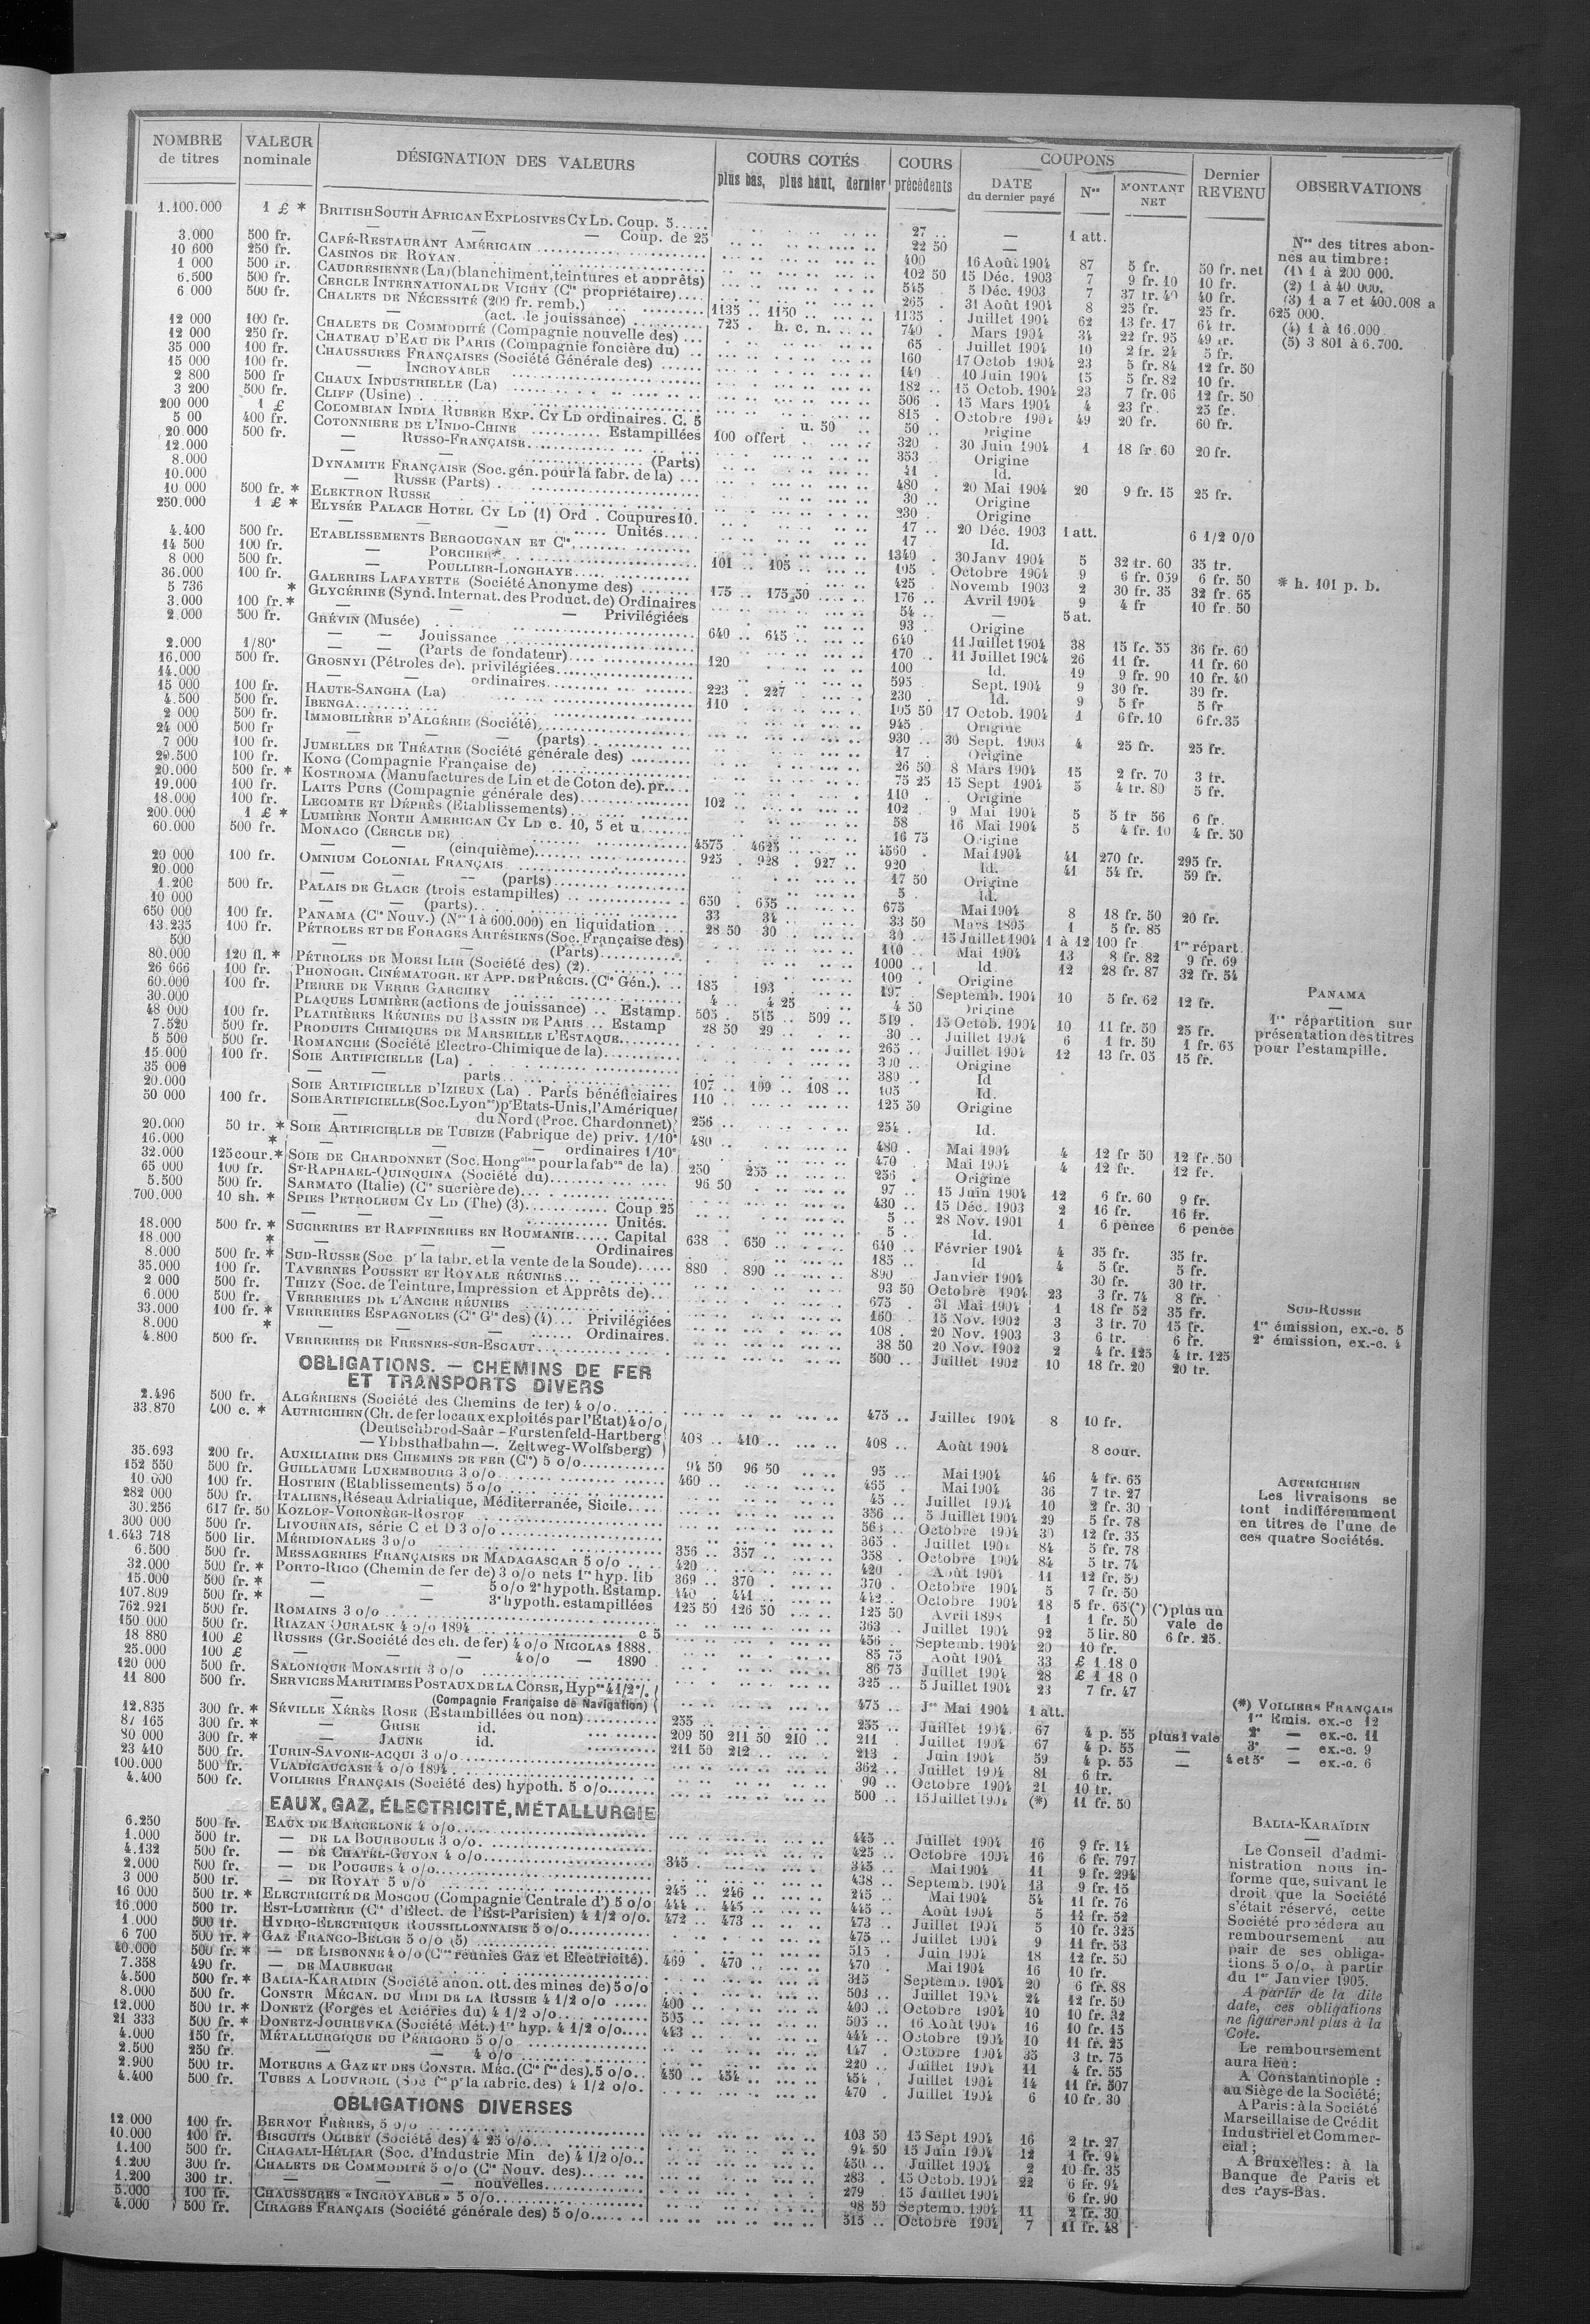 NOMBRE de titres | VALEUR nominale | DÉSIGNATION DES VALEURS | COURS COTÉS plus bas, plus haut, dernier | COURS précédents | COUPONS DATE du dernier payé | Nos | MONTANT NET | Dernier REVENU | OBSERVATIONS
1.100.000 1 £ * BRITISH SOUTH AFRICAN EXPLOSIVES CY LD. Coup. 5..... 27 .. — 1 att.
— — — Coup. de 25 22 50 —
3.000 500 fr. CAFÉ-RESTAURANT AMÉRICAIN 400 16 Août 1904 87 5 fr. 50 fr. net
10 600 250 fr. CASINOS DE ROYAN. 102 50 15 Déc. 1903 7 9 fr. 10 10 fr.
1 000 500 fr. CAUDRESIENNE (La) (blanchiment, teintures et apprêts) 545 5 Déc. 1903 7 37 fr. 40 40 fr.
6.500 500 fr. CERCLE INTERNATIONAL DE VICHY (Cie propriétaire).... 265 31 Août 1904 8 25 fr. 25 fr.
6 000 500 fr. CHALETS DE NÉCESSITÉ (200 fr. remb.) 1135 .. 1150 1135 Juillet 1904 62 13 fr. 17 64 fr.
— (act. de jouissance) 725 . h. c. n. 740 Mars 1904 34 22 fr. 95 49 fr.
12 000 100 fr. CHALETS DE COMMODITÉ (Compagnie nouvelle des) ... 65 Juillet 1904 10 2 fr. 24 5 fr.
12 000 250 fr. CHATEAU D'EAU DE PARIS (Compagnie foncière du) .. 160 17 Octob 1904 23 5 fr. 84 12 fr. 50
35 000 100 fr. CHAUSSURES FRANÇAISES (Société Générale des) ...... 140 10 Juin 1904 15 5 fr. 82 10 fr.
15 000 100 fr. — INCROYABLE 182 .. 15 Octob. 1904 23 7 fr. 06 12 fr. 50
2 800 500 fr CHAUX INDUSTRIELLE (La) 506 .. 15 Mars 1904 4 23 fr. 25 fr.
3 200 500 fr. CLIFF (Usine) 815 Octobre 1904 49 20 fr. 60 fr.
200 000 1 £ COLOMBIAN INDIA RUBBER EXP. CY LD ordinaires. C. 5 u. 50 50 .. Origine
5 00 400 fr. COTONNIERE DE L'INDO-CHINE Estampillées 100 offert 320 30 Juin 1904 1 18 fr. 60 20 fr.
20.000 500 fr. — RUSSO-FRANÇAISE 353 Origine
12.000 — (Parts) 41 Id.
8.000 DYNAMITE FRANÇAISE (Soc. gén. pour la fabr. de la) ... 480 20 Mai 1904 20 9 fr. 15 25 fr.
10.000 — RUSSE (Parts) 30 .. Origine
10 000 500 fr. * ELEKTRON RUSSE 230 Origine
250.000 1 £ * ELYSÉE PALACE HOTEL CY LD (1) Ord . Coupures 10. 17 .. 20 Déc. 1903 1 att. 6 1/2 0/0
— — — Unités..... 17 Id.
4.400 500 fr. ETABLISSEMENTS BERGOUGNAN ET Cie 1340 30 Janv 1904 5 32 fr. 60 35 fr.
14 500 100 fr. — PORCHER* 101 .. 105 105 Octobre 1904 9 6 fr. 059 6 fr. 50 * h. 101 p. b.
8 000 500 fr. — POULLIER-LONGHAYE 425 Novemb 1903 2 30 fr. 35 32 fr. 65
36.000 100 fr. GALERIES LAFAYETTE (Société Anonyme des) ....... 175 .. 175 50 176 .. Avril 1904 9 4 fr 10 fr. 50
5 736 * GLYCÉRINE (Synd. Internat. des Product. de) Ordinaires 54 .. — 5 at.
3.000 100 fr. * — — Privilégiées 93 Origine
2.000 500 fr. GRÉVIN (Musée) 640 .. 645 640 11 Juillet 1904 38 15 fr. 55 36 fr. 60
— — Jouissance 170 .. 11 Juillet 1904 26 11 fr. 11 fr. 60
2.000 1/80e — (Parts de fondateur) 120 100 Id. 19 9 fr. 90 10 fr. 40
16.000 500 fr. GROSNYI (Pétroles de). privilégiées 595 Sept. 1904 9 30 fr. 30 fr.
14.000 — ordinaires 223 . 227 230 Id. 9 5 fr 5 fr
15 000 100 fr. HAUTE-SANGHA (La) 110 105 50 17 Octob. 1904 1 6 fr. 10 6 fr. 35
4.500 500 fr. IBENGA 945 Origine
2 000 500 fr. IMMOBILIÈRE D'ALGÉRIE (Société) 930 .. 30 Sept. 1903 4 25 fr. 25 fr.
24 000 500 fr — — (parts) 17 Origine
7 000 100 fr. JUMELLES DE THÉATRE (Société générale des) 26 50 8 Mars 1904 15 2 fr. 70 3 fr.
29.500 100 fr. KONG (Compagnie Française de) 75 25 15 Sept 1904 5 4 fr. 80 5 fr.
20.000 500 fr. * KOSTROMA (Manufactures de Lin et de Coton de). pr.... 110 Origine
19.000 100 fr. LAITS PURS (Compagnie générale des) 102 102 . 9 Mai 1904 5 5 fr 56 6 fr.
18.000 100 fr. LECOMTE ET DÉPRÈS (Etablissements) 58 16 Mai 1904 5 4 fr. 10 4 fr. 50
200.000 1 £ * LUMIÈRE NORTH AMERICAN CY LD c. 10, 5 et u. 16 75 Origine
60.000 500 fr. MONACO (CERCLE DE) 4575 . 4625 4560 . Mai 1904 41 270 fr. 295 fr.
— — (cinquième) 925 . 928 . 927 920 Id. 41 54 fr. 59 fr.
20 000 100 fr. OMNIUM COLONIAL FRANÇAIS 17 50 Origine
20.000 — — (parts) 5 Id.
1.200 500 fr. PALAIS DE GLACE (trois estampilles) 650 . 655 675 Mai 1904 8 18 fr. 50 20 fr.
10 000 — — (parts) 33 34 33 50 Mars 1895 1 5 fr. 85
650 000 100 fr. PANAMA (Cie Nouv.) (Nos 1 à 600.000) en liquidation 28 50 30 30 .. 15 Juillet 1904 1 à 12 100 fr 1re répart.
13.235 100 fr. PÉTROLES ET DE FORAGES ARTÉSIENS (Soc. Française des) 110 Mai 1904 13 8 fr. 82 9 fr. 69
500 — (Parts) 1000 .. Id 12 28 fr. 87 32 fr. 54
80.000 120 fl. * PÉTROLES DE MORSI ILIR (Société des) (2) 100 Origine
26 666 100 fr. PHONOGR. CINÉMATOGR. ET APP. DE PRÉCIS. (Cie Gén.). 185 193 197 Septemb. 1904 10 5 fr. 62 12 fr.
60.000 100 fr. PIERRE DE VERRE GARCHEY 4 .. 4 25 4 50 Origine
30.000 PLAQUES LUMIÈRE (actions de jouissance) .. Estamp. 505 . 515 .. 509 519 . 15 Octob. 1904 10 11 fr. 50 25 fr.
48 000 100 fr. PLATRIÈRES RÉUNIES DU BASSIN DE PARIS .. Estamp 28 50 29 30 .. Juillet 1904 6 1 fr. 50 1 fr. 65
7.520 500 fr. PRODUITS CHIMIQUES DE MARSEILLE L'ESTAQUE 265 Juillet 1904 12 13 fr. 05 15 fr.
5 500 500 fr. ROMANCHE (Société Electro-Chimique de la) 300 Origine
15.000 100 fr. SOIE ARTIFICIELLE (La) 380 Id
35 000 — — parts 107 .. 109 .. 108 105 Id.
20.000 SOIE ARTIFICIELLE D'IZIEUX (La) . Parts bénéficiaires 110 125 50 Origine
50 000 100 fr. SOIE ARTIFICIELLE (Soc. Lyonse) pr Etats-Unis, l'Amérique
du Nord (Proc. Chardonnet) 256 254 Id.
20.000 50 fr. * SOIE ARTIFICIELLE DE TUBIZE (Fabrique de) priv. 1/10e 480 480 . Mai 1904 4 12 fr 50 12 fr. 50
16.000 * — — ordinaires 1/10e 470 Mai 1904 4 12 fr. 12 fr.
32.000 125 cour. * SOIE DE CHARDONNET (Soc. Hongoise pour la fabon de la) 250 255 256 Origine
65 000 100 fr. ST-RAPHAEL-QUINQUINA (Société du) 96 50 97 .. 15 Juin 1904 12 6 fr. 60 9 fr.
5.500 500 fr. SARMATO (Italie) (Cie sucrière de) 430 .. 15 Déc. 1903 2 16 fr. 16 fr.
700.000 10 sh. * SPIES PETROLEUM CY LD (The) (3) Coup 25 5 .. 28 Nov. 1901 1 6 pence 6 pence
— — — Unités. 5 .. Id.
18.000 500 fr. * SUCRERIES ET RAFFINERIES EN ROUMANIE..... Capital 638 . 650 640 .. Février 1904 4 35 fr. 35 fr.
18 000 * — — Ordinaires 185 .. Id 4 5 fr. 5 fr.
8.000 500 fr. * SUD-RUSSE (Soc. pr la fabr. et la vente de la Soude) 880 . 890 890 Janvier 1904 30 fr. 30 fr.
35.000 100 fr. TAVERNES POUSSET ET ROYALE RÉUNIES 93 50 Octobre 1904 23 3 fr. 74 8 fr.
2 000 500 fr. THIZY (Soc. de Teinture, Impression et Apprêts de) 675 31 Mai 1904 1 18 fr 52 35 fr.
6.000 500 fr. VERRERIES DE L'ANCRE RÉUNIES 160 15 Nov. 1902 3 3 fr. 70 15 fr.
33.000 100 fr. * VERRERIES ESPAGNOLES (Cie Gle des) (4) Privilégiées 108 . 20 Nov. 1903 3 6 fr. 6 fr.
8.000 * — — Ordinaires. 38 50 20 Nov. 1902 2 4 fr. 125 4 fr. 125
4.800 500 fr. VERRERIES DE FRESNES-SUR-ESCAUT 500 .. Juillet 1902 10 18 fr. 20 20 fr.
OBLIGATIONS. — CHEMINS DE FER
ET TRANSPORTS DIVERS
2.496 500 fr. ALGÉRIENS (Société des Chemins de fer) 4 o/o 475 .. Juillet 1904 8 10 fr.
33.870 400 c. * AUTRICHIEN (Ch. de fer locaux exploités par l'Etat) 4 o/o
(Deutschbrod-Saâr – Furstenfeld-Hartberg
— Ybbsthalbahn —. Zeltweg-Wolfsberg) 408 .. 410 408 .. Août 1904 8 cour.
35.693 200 fr. AUXILIAIRE DES CHEMINS DE FER (Cie) 5 o/o 94 50 96 50 95 Mai 1904 46 4 fr. 65
152 550 500 fr. GUILLAUME LUXEMBOURG 3 o/o 460 455 Mai 1904 36 7 fr. 27
10.000 100 fr. HOSTEIN (Etablissements) 5 o/o 45 Juillet 1904 10 2 fr. 30
282 000 500 fr. ITALIENS, Réseau Adriatique, Méditerranée, Sicile 356 .. 5 Juillet 1904 29 5 fr. 78
30.256 617 fr. 50 KOZLOF-VORONÈGE-ROSTOF 563 Octobre 1904 30 12 fr. 35
300 000 500 fr. LIVOURNAIS, série C et D 3 o/o 365 Juillet 1904 84 5 fr. 78
1.643 718 500 lir. MÉRIDIONALES 3 o/o 356 .. 357 358 Octobre 1904 84 5 fr. 74
6.500 500 fr. MESSAGERIES FRANÇAISES DE MADAGASCAR 5 o/o 420 420 Août 1904 11 12 fr. 50
32.000 500 fr. * PORTO-RICO (Chemin de fer de) 3 o/o nets 1re hyp. lib 369 .. 370 370 Octobre 1904 5 7 fr. 50
15.000 500 fr. * — — 5 o/o 2e hypoth. Estamp. 440 . 441 442 Octobre 1904 18 5 fr. 65(*) (*) plus un
107.809 500 fr. * — — 3e hypoth. estampillées 125 50 126 50 125 50 Avril 1898 1 1 fr. 50 vale de
762.921 500 fr. ROMAINS 3 o/o 363 Juillet 1904 92 5 lir. 80 6 fr. 25.
150 000 500 fr. RIAZAN OURALSK 4 o/o 1894 c 5 456 Septemb. 1904 20 10 fr.
18 880 100 £ RUSSES (Gr. Société des ch. de fer) 4 o/o NICOLAS 1888. 85 75 Août 1904 33 £ 1 18 0
25.000 100 £ — — — 4 o/o — 1890 86 75 Juillet 1904 28 £ 1 18 0
120 000 500 fr. SALONIQUE MONASTIR 3 o/o 325 .. 5 Juillet 1904 23 7 fr. 47
11 800 500 fr. SERVICES MARITIMES POSTAUX DE LA CORSE, Hypre 4 1/2 %
(Compagnie Française de Navigation) 475 Mai 1904 1 att.
12.835 300 fr. * SÉVILLE XÉRÈS ROSE (Estambillées ou non) 255 255 .. Juillet 1904 67 4 p. 55 plus 1 vale
87 165 300 fr. * — GRISE id. 209 50 211 50 210 211 Juillet 1904 67 4 p. 55 —
80 000 300 fr. * — JAUNE id. 211 50 212 213 Juin 1904 59 4 p. 55 —
23 410 500 fr. TURIN-SAVONE-ACQUI 3 o/o 362 Juillet 1904 81 6 fr.
100.000 500 fr. VLADICAUCASE 4 o/o 1894 90 Octobre 1904 21 10 fr.
4.400 500 fr. VOILIERS FRANÇAIS (Société des) hypoth. 5 o/o 500 .. 15 Juillet 1904 (*) 11 fr. 50
EAUX, GAZ, ÉLECTRICITÉ, MÉTALLURGIE
6.250 500 fr. EAUX DE BARCELONE 4 o/o 445 .. Juillet 1904 16 9 fr. 14
1.000 500 fr. — DE LA BOURBOULE 3 o/o 425 .. Octobre 1904 16 6 fr. 797
4.132 500 fr. — DE CHATEL-GUYON 4 o/o 345 345 .. Mai 1904 11 9 fr. 294
2.000 500 fr. — DE POUGUES 4 o/o 438 Septemb. 1904 13 9 fr. 15
3 000 500 fr. — DE ROYAT 5 o/o 245 .. 246 245 Mai 1904 54 11 fr. 76
16 000 500 fr. * ELECTRICITÉ DE MOSCOU (Compagnie Centrale d') 5 o/o 444 .. 445 445 Août 1904 5 11 fr. 52
16.000 500 fr. EST-LUMIÈRE (Cie d'Elect. de l'Est-Parisien) 4 1/2 o/o. 472 .. 473 473 Juillet 1904 5 10 fr. 325
1.000 500 fr. HYDRO-ÉLECTRIQUE ROUSSILLONNAISE 5 o/o 475 Juillet 1904 9 11 fr. 53
6 700 500 fr. * GAZ FRANCO-BELGE 5 o/o (5) 515 Juin 1904 18 12 fr. 50
40.000 500 fr. * — DE LISBONNE 4 o/o (Cies réunies Gaz et Electricité). 469 . 470 470 Mai 1904 16 10 fr.
7.358 490 fr. — DE MAUBEUGE 315 Septemb. 1904 20 6 fr. 88
4.500 500 fr. * BALIA-KARAIDIN (Société anon. ott. des mines de) 5 o/o 503 Juillet 1904 24 12 fr. 50
8.000 500 fr. CONSTR MÉCAN. DU MIDI DE LA RUSSIE 4 1/2 o/o 400 400 Octobre 1904 10 10 fr. 32
12.000 500 fr. * DONETZ (Forges et Aciéries du) 4 1/2 o/o 505 505 16 Août 1904 16 10 fr. 15
21 333 500 fr. * DONETZ-JOURIEVKA (Société Mét.) 1re hyp. 4 1/2 o/o 443 444 Octobre 1904 10 11 fr. 25
4.000 150 fr. MÉTALLURGIQUE DU PÉRIGORD 5 o/o 147 Octobre 1904 35 3 fr. 75
2.500 250 fr. — — 4 o/o 220 Juillet 1904 11 4 fr. 55
2.900 500 fr. MOTEURS A GAZ ET DES CONSTR. MÉC. (Cie fse des). 5 o/o 450 .. 454 454 Juillet 1904 14 11 fr. 507
4.400 500 fr. TUBES A LOUVROIL (Soc fse pr la fabric. des) 4 1/2 o/o. 470 Juillet 1904 6 10 fr. 30
OBLIGATIONS DIVERSES
12.000 100 fr. BERNOT FRÈRES, 5 o/o 103 50 15 Sept 1904 16 2 fr. 27
10.000 100 fr. BISCUITS OLIBET (Société des) 4 25 o/o 94 50 15 Juin 1904 12 1 fr. 94
1.100 500 fr. CHAGALI-HÉLIAR (Soc. d'Industrie Min de) 4 1/2 o/o 450 Juillet 1904 2 10 fr. 35
1.200 300 fr. CHALETS DE COMMODITÉ 5 o/o (Cie Nouv. des) 283 15 Octob. 1904 22 6 fr. 94
1.200 300 fr. — — — nouvelles 279 15 Juillet 1904 6 fr. 90
5.000 100 fr. CHAUSSURES « INCROYABLE » 5 o/o 98 50 Septemb. 1904 11 2 fr. 30
4.000 500 fr. CIRAGES FRANÇAIS (Société générale des) 5 o/o 515 .. Octobre 1904 7 11 fr. 48
Nos des titres abon-
nés au timbre:
(1) 1 à 200 000.
(2) 1 à 40 000.
(3) 1 a 7 et 400.008 a
625 000.
(4) 1 à 16.000
(5) 3 801 à 6.700.
PANAMA
—
1re répartition sur
présentation des titres
pour l'estampille.
SUD-RUSSE
1re émission, ex.-c. 5
2e émission, ex.-c. 4
AUTRICHIEN
Les livraisons se
font indifféremment
en titres de l'une de
ces quatre Sociétés.
(*) VOILIERS FRANÇAIS
1re Emis. ex.-c 12
2e — ex.-c. 11
3e — ex.-c. 9
4 et 5e — ex.-c. 6
BALIA-KARAÏDIN
—
Le Conseil d'admi-
nistration nous in-
forme que, suivant le
droit que la Société
s'était réservé, cette
Société procédera au
remboursement au
pair de ses obliga-
tions 5 o/o, à partir
du 1er Janvier 1905.
A partir de la dite
date, ces obligations
ne figureront plus à la
Cote.
Le remboursement
aura lieu:
A Constantinople :
au Siège de la Société;
A Paris: à la Société
Marseillaise de Crédit
Industriel et Commer-
cial ;
A Bruxelles: à la
Banque de Paris et
des Pays-Bas.